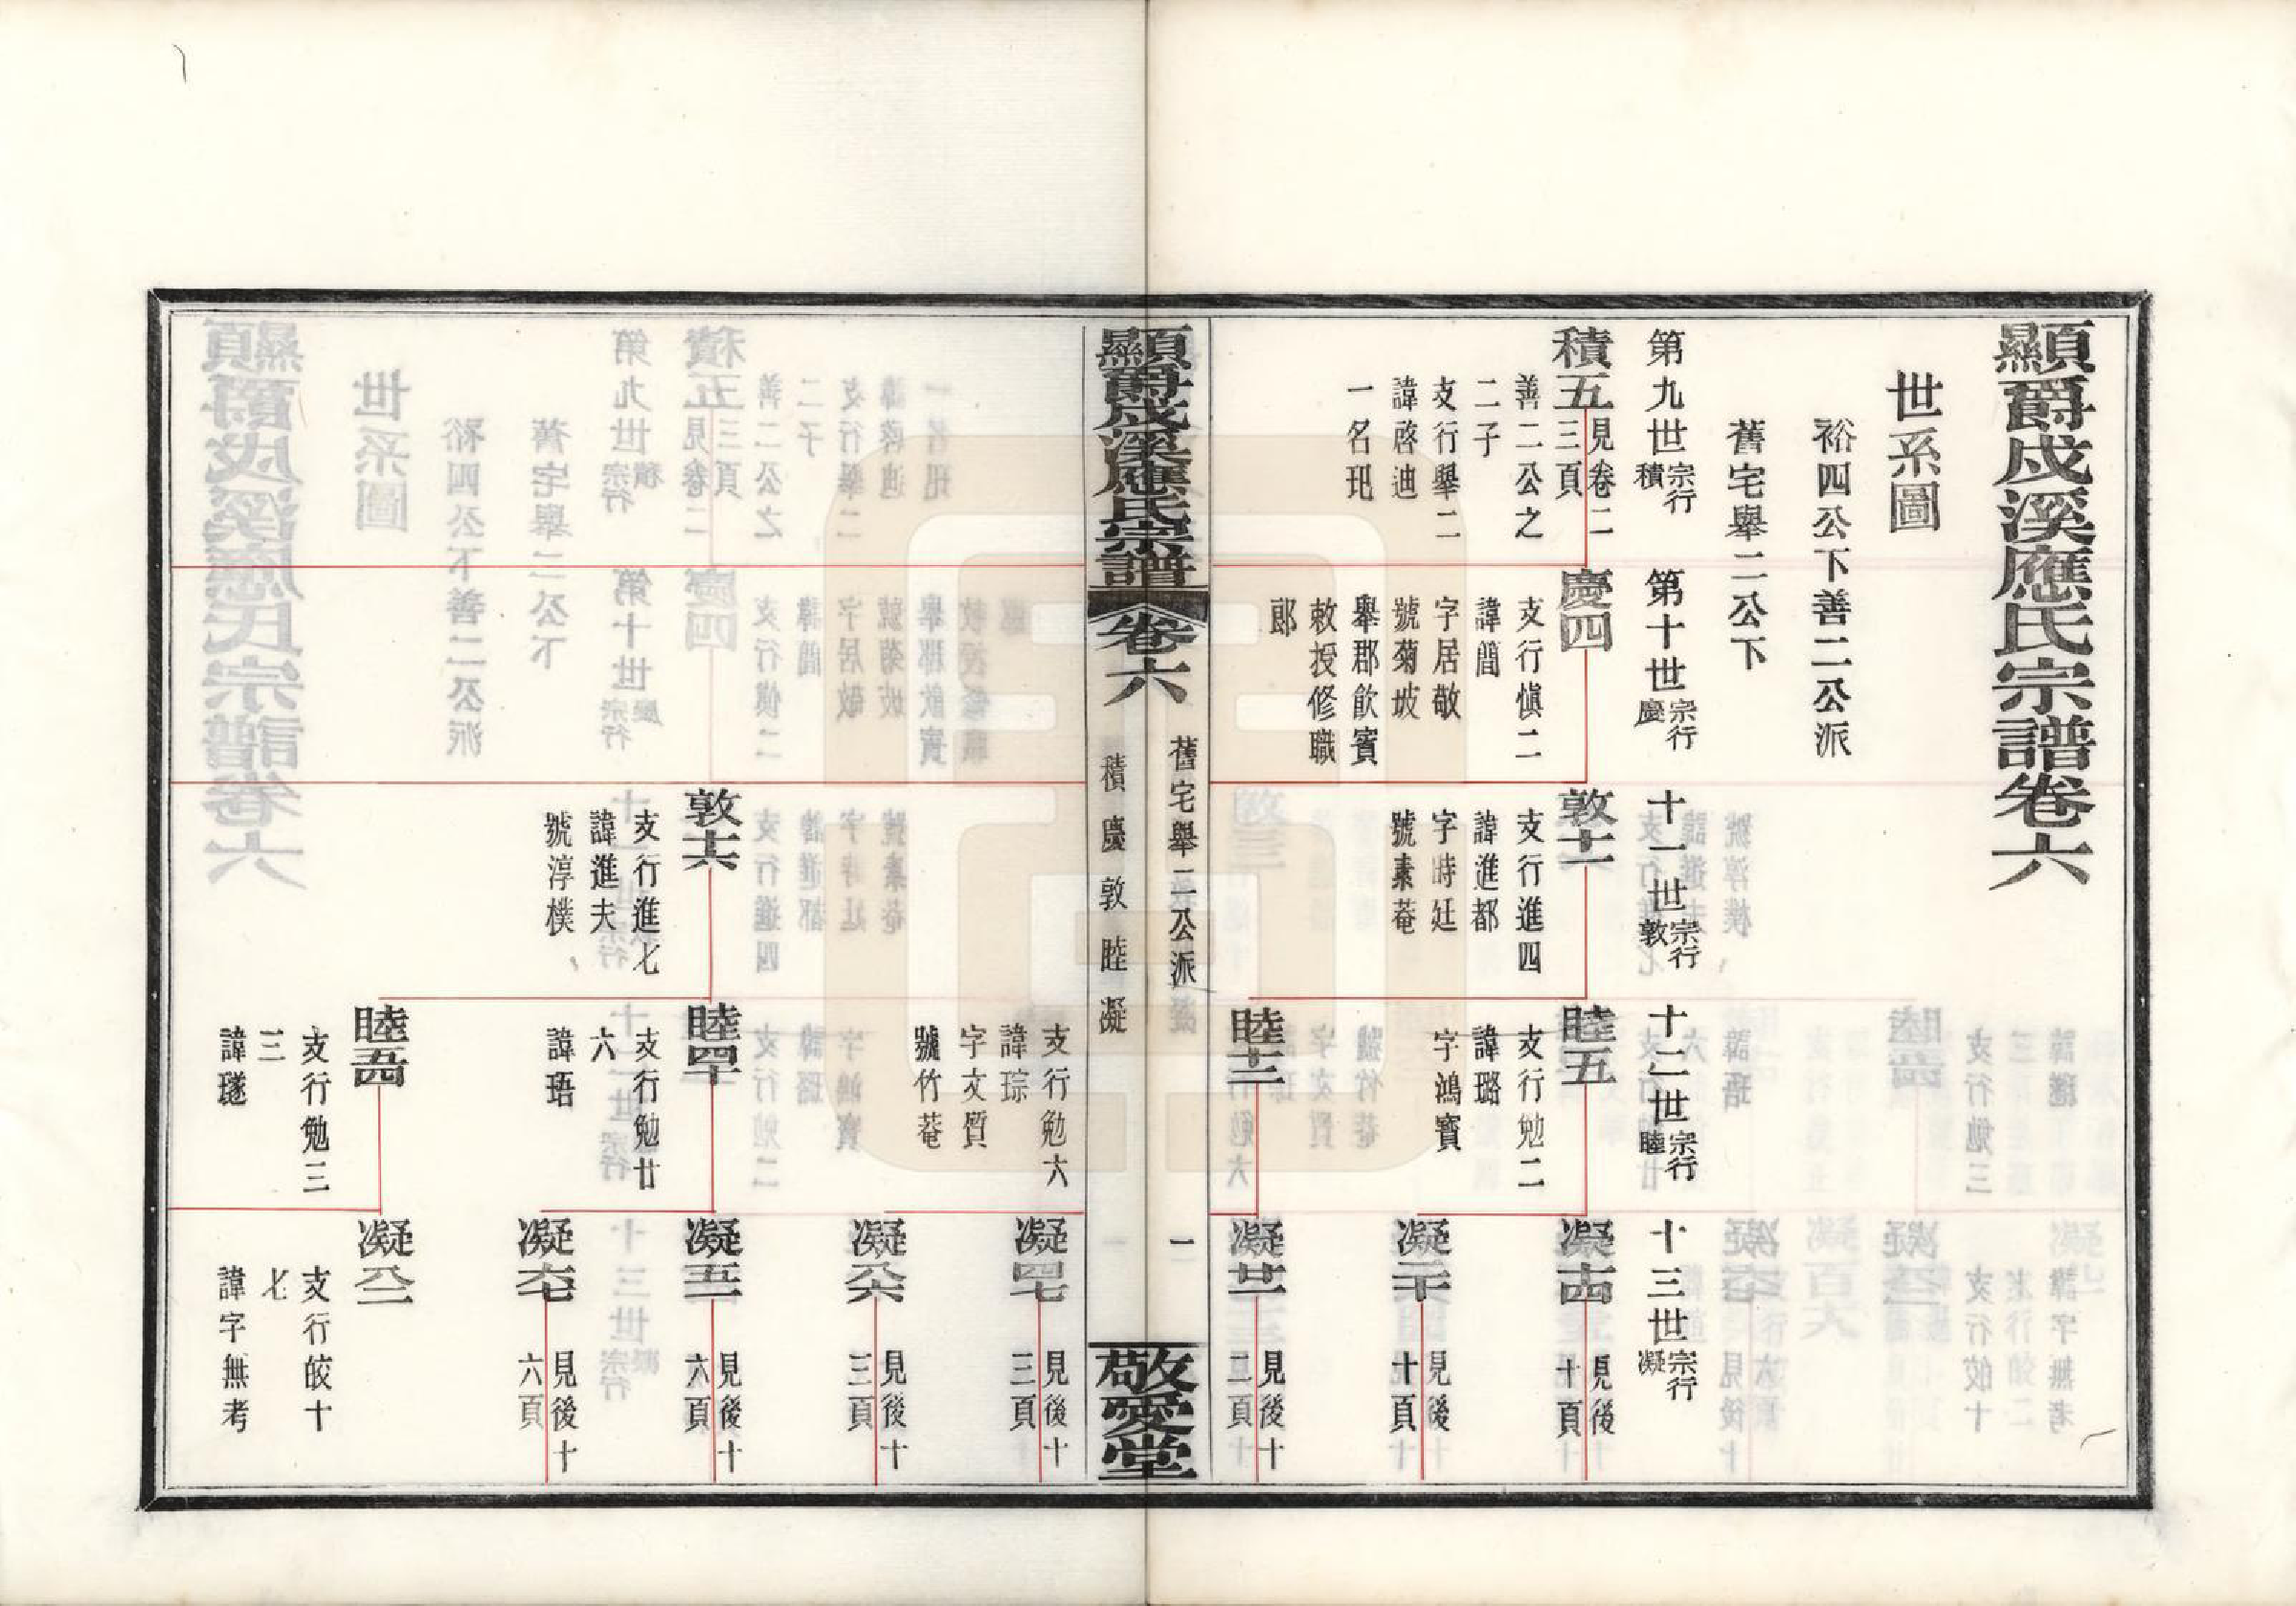 顯爵戍溪應氏宗譜卷六
世系圖
裕四公下善二公派
舊宅舉二公下
第九世宗行積
第十世宗行慶
十一世宗行敦
十二世宗行睦
十三世宗行凝
積五見卷二三頁
善二公之
二子
支行舉二
諱啓迪
一名玘
慶四
支行慎二
諱簡
字居敬
號菊坡
舉郡飲賓
敕授修職
郎
敦十一
支行進四
諱進都
字時廷
號素菴
睦五
支行勉二
諱璐
字鴻寶
凝十四見後十頁
凝二十見後十頁
睦十三
凝廿一見後十二頁
顯爵戍溪應氏宗譜
卷六
舊宅舉二公派
積慶敦睦凝
一
敬愛堂
支行勉六
諱琮
字文質
號竹菴
凝四七見後十三頁
凝六見後十三頁
敦十六
支行進七
諱進夫
號淳樸
睦四十
支行勉廿
六
諱珸
凝五一見後十六頁
凝六七見後十六頁
睦五四
支行勉三
三
諱璲
凝八二
支行皎十
七
諱字無考